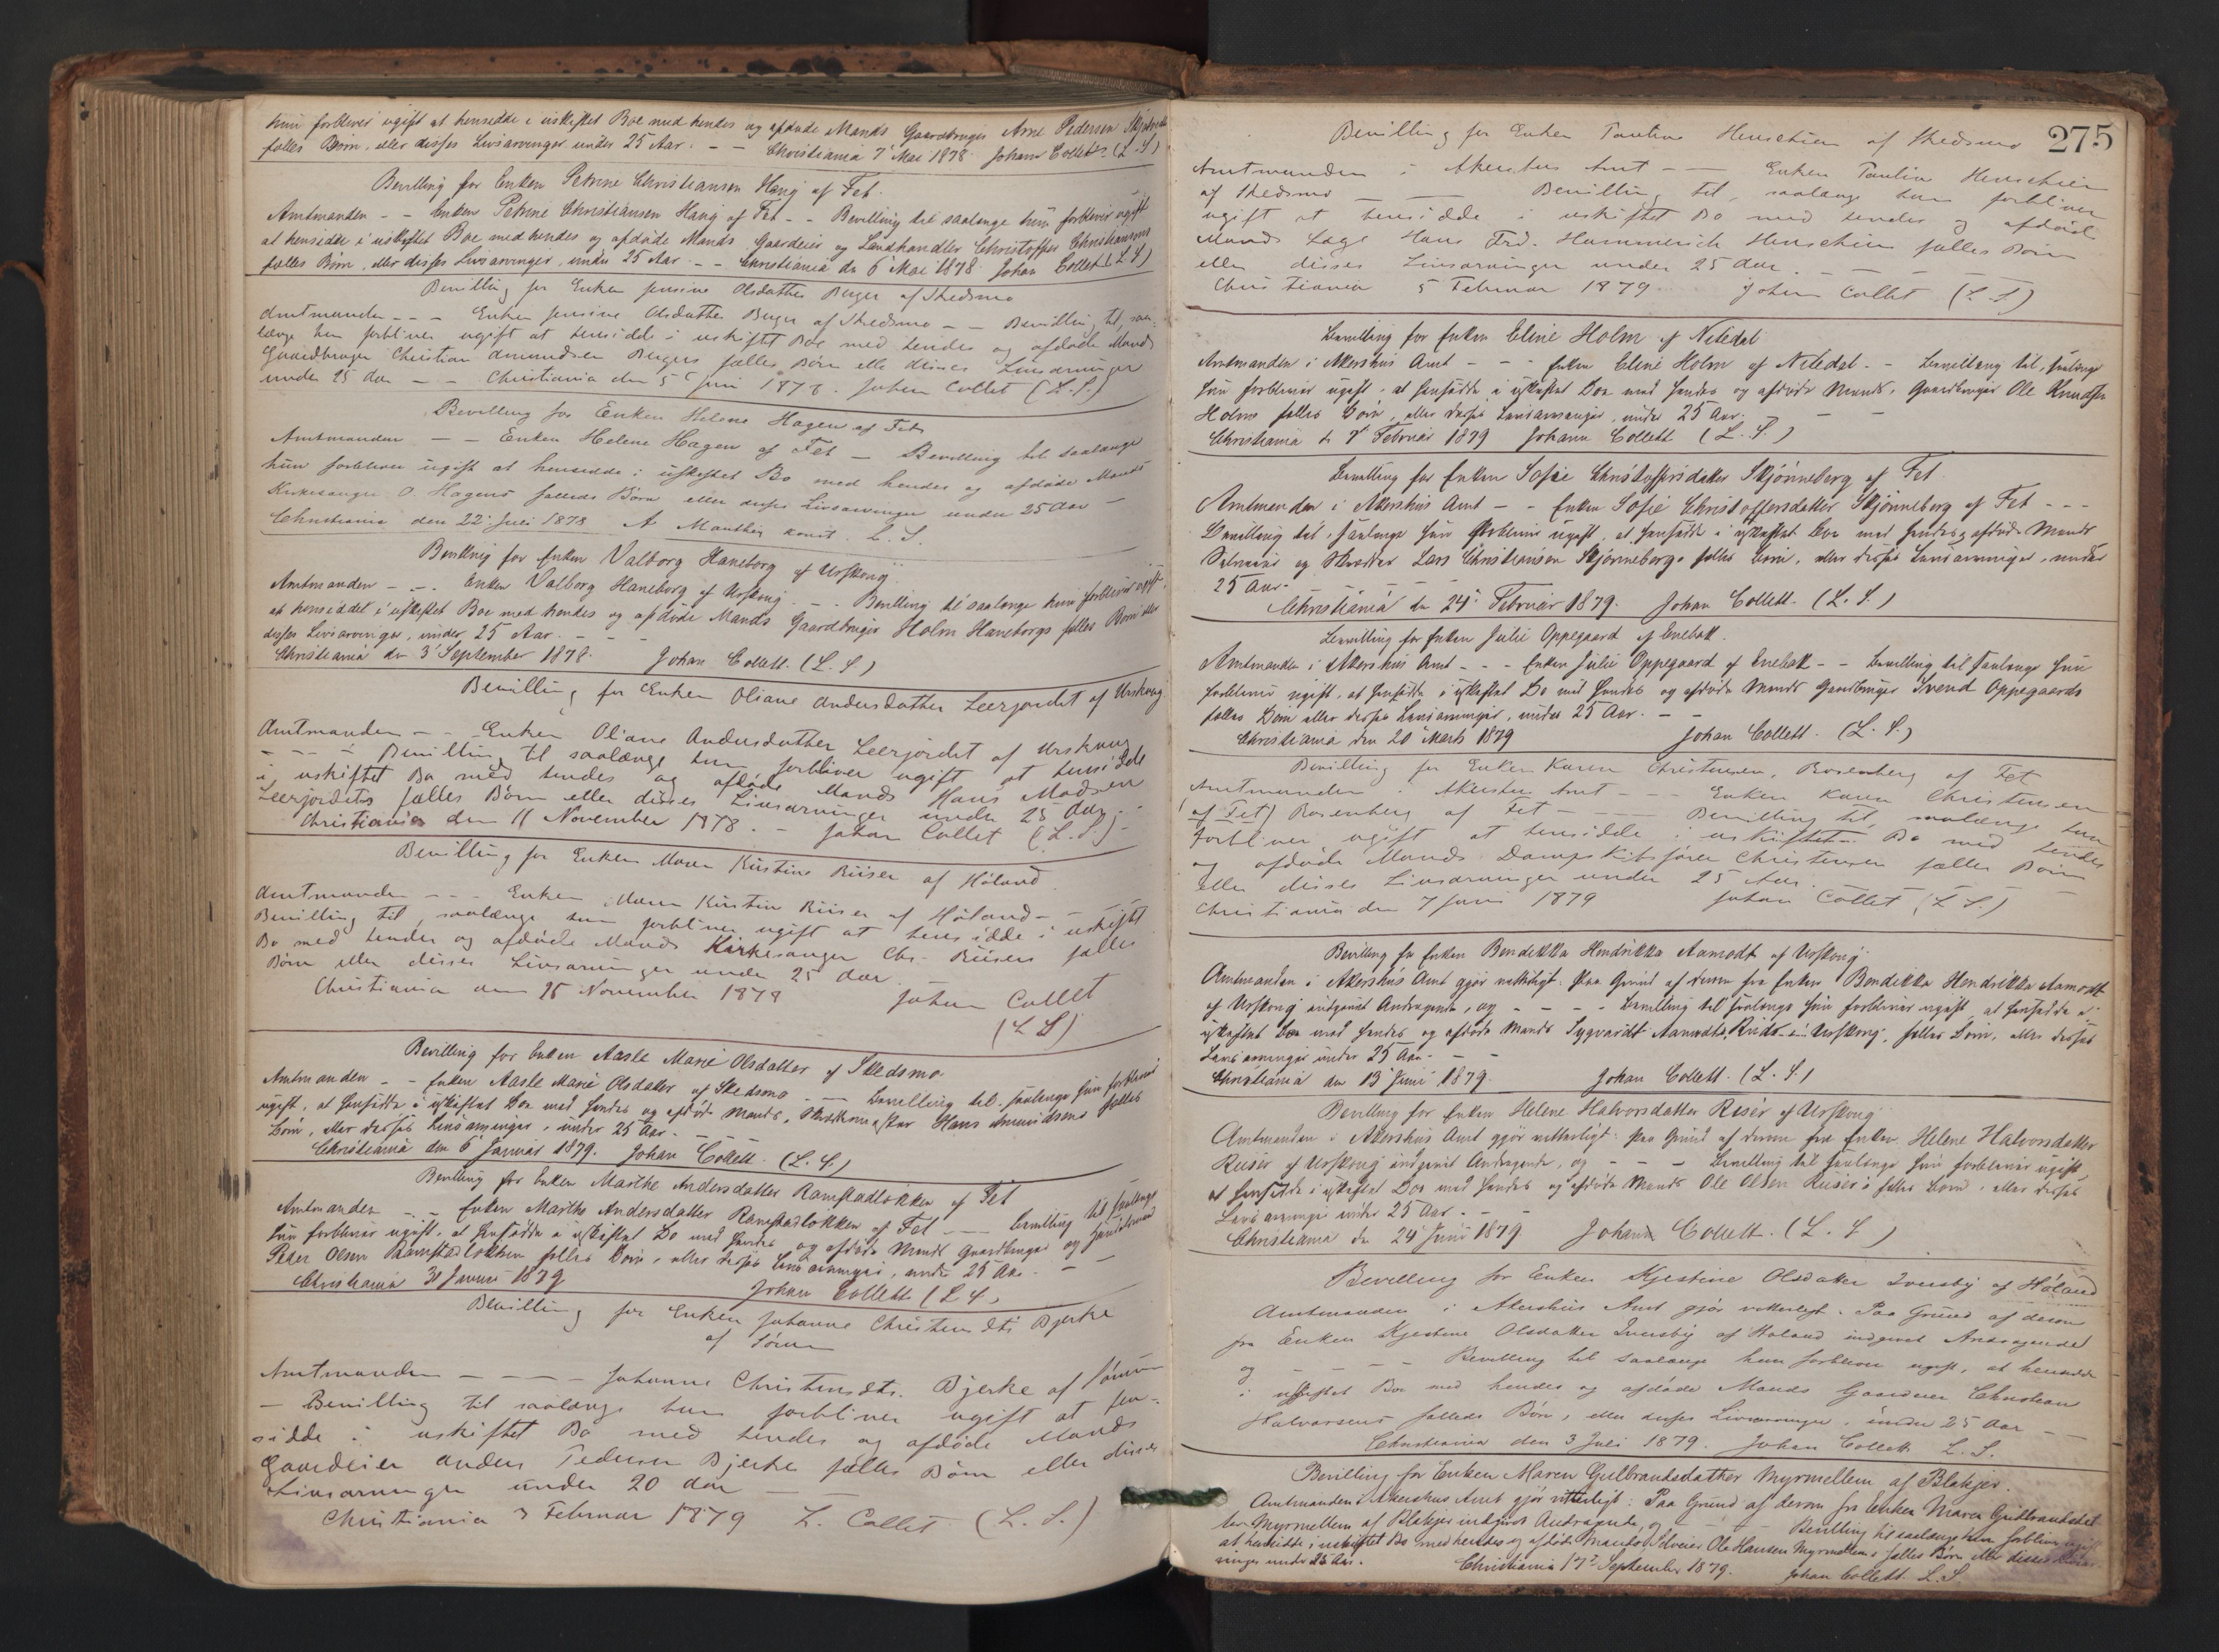 hun forbliver ugift at hensidde i uskiftet Boe med hendes og afdøde Mands Gaardbruger Arne Pedersen
fælles Børn, eller disses Livsarvinger under 25 Aar. - - Christiania 7 Mai 1878. Johan Collett (L.S)
Bevilling for Enken Petrine Christiansen Haug af Fet.
Amtmanden - - Enken Petrine Christiansen Haug af Fet - - Bevilling til saalenge hun forbliver ugift
at hensidde i uskiftet Boe med hendes og afdøde Mands Gaardeier og Landhandler Christoffer Christiansens
fælles Børn, eller disses Livsarvinger, under 25 Aar. - - Christiania dn 6 Mai 1878. Johan Collett (L.S)
Bevilling for Enken Jensine Olsdatter Berger af Skedsmo
Amtmanden - - - Enken Jensine Olsdatter Berger af Skedsmo - - Bevilling til, saa-
længe hun forbliver ugift at hensidde i uskiftet Boe med hendes og afdøde Mands
Gaardbruger Christian Amundsen Bergers fælles Børn eller disses Livsarvinger
under 25 Aar - - Christiania den 5 Juni 1878. Johan Collet (L.S.)
Bevilling for Enken Helene Hagen af Fet
Amtmanden - - Enken Helene Hagen af Fet - Bevilling til saalænge
hun forbliver ugift at hensidde i uskiftet Bo med hendes og afdøde Mands
Kirkesanger O. Hagens fælleds Børn eller disses Livsarvinger under 25 Aar -
Christiania den 22 Juli 1878 A Manthey const. L.S.
Bevilling for Enken Valborg Haneborg af Urskoug.
Amtmanden - - . Enken Valborg Haneborg af Urskoug. - - Bevilling til saalænge hun forbliver ugift
at hensidde i uskiftet Boe med hendes og afdøde Mands Gaardbruger Holm Haneborgs fælles Børn eller
disses Livsarvinger, under 25 Aar. - - -
Christiania dn 3 September 1878. Johan Collett. (L.S.)
Bevilling for Enken Oliane Andersdatter Leerjordet af Urskoug
Amtmanden - - Enken Oliane Andersdatter Leerjordet af Urskoug
- - - - Bevilling til saalænge hun forbliver ugift at hensidde
i uskiftet Bo med hendes og afdøde Mands Hans Madsen
Leerjordets fælles Børn eller disses Livsarvinger under 25 Aar. -
Christiania den 11 November 1878. - Johan Collet (L.S.) -
Bevilling for Enken Maren Kirstine Riiser af Høland.
Amtmanden - - - Enken Maren Kirstine Riiser af Høland - -
Bevilling til, saalænge hun forbliver ugift at hensidde i uskiftet
Bo med hendes og afdøde Mands Kirkesanger Chr. Riisers fælles
Børn eller disses Livsarvinger under 25 Aar.
Christiania den 25 November 1878 Johan Collet
(L S)
Bevilling for Enken Aasle Marie Olsdatter af Skedsmo.
Amtmanden - - Enken Aasle Marie Olsdatter af Skedsmo - - Bevilling til saalenge hun forbliver
ugift, at hensidde i uskiftet Boe med hendes og afdøde Mands, Hans Amundsens fælles
Børn, eller disses Livsarvinger, under 25 Aar. - - -
Christiania den 6 Januar 1879. Johan Collett. (L.S.)
Bevilling for Enken Marthe Andersdatter Ramstadløkken af Fet
Amtmanden - - Enken Marthe Andersdatter Ramstadløkken af Fet - - - Bevilling til saalenge
hun forbliver ugift, at hensidde i uskiftet Bo med hendes og afdøde Mands Gaardbruger og
Peder Olsen Ramstadløkken fælles Børn, eller disses Livsarvinger, under 25 Aar. - -
Christiania 31 Januar 1879 Johan Collett (L S)
Bevilling for Enken Johanne Christensdtr Bjerke
af Sørum
Amtmanden - - - - Johanne Christensdtr. Bjerke af Sørum
- Bevilling til saalænge hun forbliver ugift at hen-
sidde i uskiftet Bo med hendes og afdøde Mands
Gaardeier Anders Pedersen Bjerke fælles Børn eller disses
Livsarvinger under 20 Aar - -
Christiania 3 Februar 1879 J. Collet (L.S.)
275
Bevilling for Enken Pauline Henschien af Skedsmo
Amtmanden i Akershus Amt - - Enken Pauline Henschien
af Skedsmo - - Bevilling til, saalænge hun forbliver
ugift at hensidde i uskiftet Bo med hendes og afdøde
Mands Læge Hans Frd. Hammerich Henschien fælles Børn
eller disses Livsarvinger under 25 Aar. - - - -
Christiania 5 Februar 1879. Johan Collet (L.S.)
Bevilling for Enken Eline Holm af Nitedal
Amtmanden i Akershus Amt - - - Enken Eline Holm af Nitedal. - Bevilling til, saalenge
hun forbliver ugift, at hensidde i uskiftet Boe med hendes og afdøde Mands, Gaardbruger Ole Knudsen
Holms fælles Børn, eller disses Livsarvinger, under 25 Aar. - - -
Christiania d. 7 Februar 1879 Johan Collett (L.S.)
Bevilling for Enken Sofie Christoffersdatter Skjønneberg af Fet
Amtmanden i Akershus Amt - - Enken Sofie Christoffersdatter Skjønneberg af Fet - - -
Bevilling til, saalenge hun forbliver ugift, at hensidde i uskiftet Boe med hendes og afdøde Mands
Selveier og Skrædder Lars Christiansen Skjønnebergs fælles Børn, eller disses Livsarvinger, under
25 Aar. -
Christiania dn 24 Februar 1879. Johan Collett. (L.S.)
Bevilling for Enken Julie Oppegaard af Enebak.
Amtmanden i Akershus Amt - - - Enken Julie Oppegaard af Enebak - - Bevilling til saalenge hun
forbliver ugift, at hensidde i uskiftet Bo med hendes og afdøde Mands Gaardbruger Svend Oppegaards
fælles Børn eller disses Livsarvinger, under 25 Aar. - -
Christiania den 20 Marts 1879 Johan Collett. (L.S.)
Bevilling for Enken Karen Christensen, Rosenberg af Fet
Amtmanden i Akershus Amt - - - Enken Karen Christensen
(af Fet) Rosenberg af Fet - - - - Bevilling til, saalænge hun
forbliver ugift at hensidde i uskiftet Bo med hendes
og afdøde Mands Dampskibsfører Christensen fælles Børn
eller disses Livsarvinger under 25 Aar.
Christiania den 7 Juni 1879 Johan Collet (L S.)
Bevilling for Enken Bendikka Hendrikka Aamodt af Urskoug.
Amtmanden i Akershus Amt gjør vitterligt: Paa Grund af derom fra Enken Bendikka Hendrikka Aamodt
af Urskoug indgivet Andragende, og - - - - Bevilling til saalenge hun forbliver ugift, at hensidde i
uskiftet Boe med hendes og afdøde Mands Sygvardt Aamodts, i Urskoug, fælles Børn, eller disses
Livsarvinger under 25 Aar. - - -
Christiania den 13 Juni 1879. Johan Collett. (L.S.)
Bevilling for Enken Helene Halvorsdatter Riser af Urskoug.
Amtmanden i Akershus Amt gjør vitterligt: Paa Grund af derom fra Enken Helene Halvorsdatter
Riiser af Urskoug indgivet Andragende, og - - - Bevilling til saalenge hun forbliver ugift,
at hensidde i uskiftet Boe med hendes og afdøde Mands Ole Olsen Riiser's fælles Børn, eller disses
Livsarvinger under 25 Aar. - -
Christiania dn 24 Juni 1879. Johan Collett. (L.S)
Bevilling for Enken Kjestine Olsdatter Qvevsby af Høland
Amtmanden i Akershus Amt gjør vitterligt: Paa Grund af derom
fra Enken Kjestine Olsdatter af Høland indgivet Andragende
og - - - - Bevilling til saalænge hun forbliver ugift, at hensidde
i uskiftet Boe med hendes og afdøde Mands Gaardeier Christian
Halvorsens fælleds Børn, eller disses Livsarvinger, under 25 Aar - -
Christiania den 3 Juli 1879. Johan Collett L.S.
Bevilling for Enken Maren Gulbrandsdatter Myrmellem af Blakjer.
Amtmanden i Akershus Amt gjør vitterligt: Paa Grund af derom fra Enken Maren Gulbrandsdat-
ter Myrmellem af Blakjer indgivet Andragende, og - - - Bevilling til saalænge hun forbliver ugift
at hensidde i uskiftet Bo med hendes og afdøde Mands, Selveier Ole Hansen Myrmellems fælles Børn eller disses Livsar-
vinger under 25 Aar. Christiania 17 September 1879. Johan Collett. L.S.